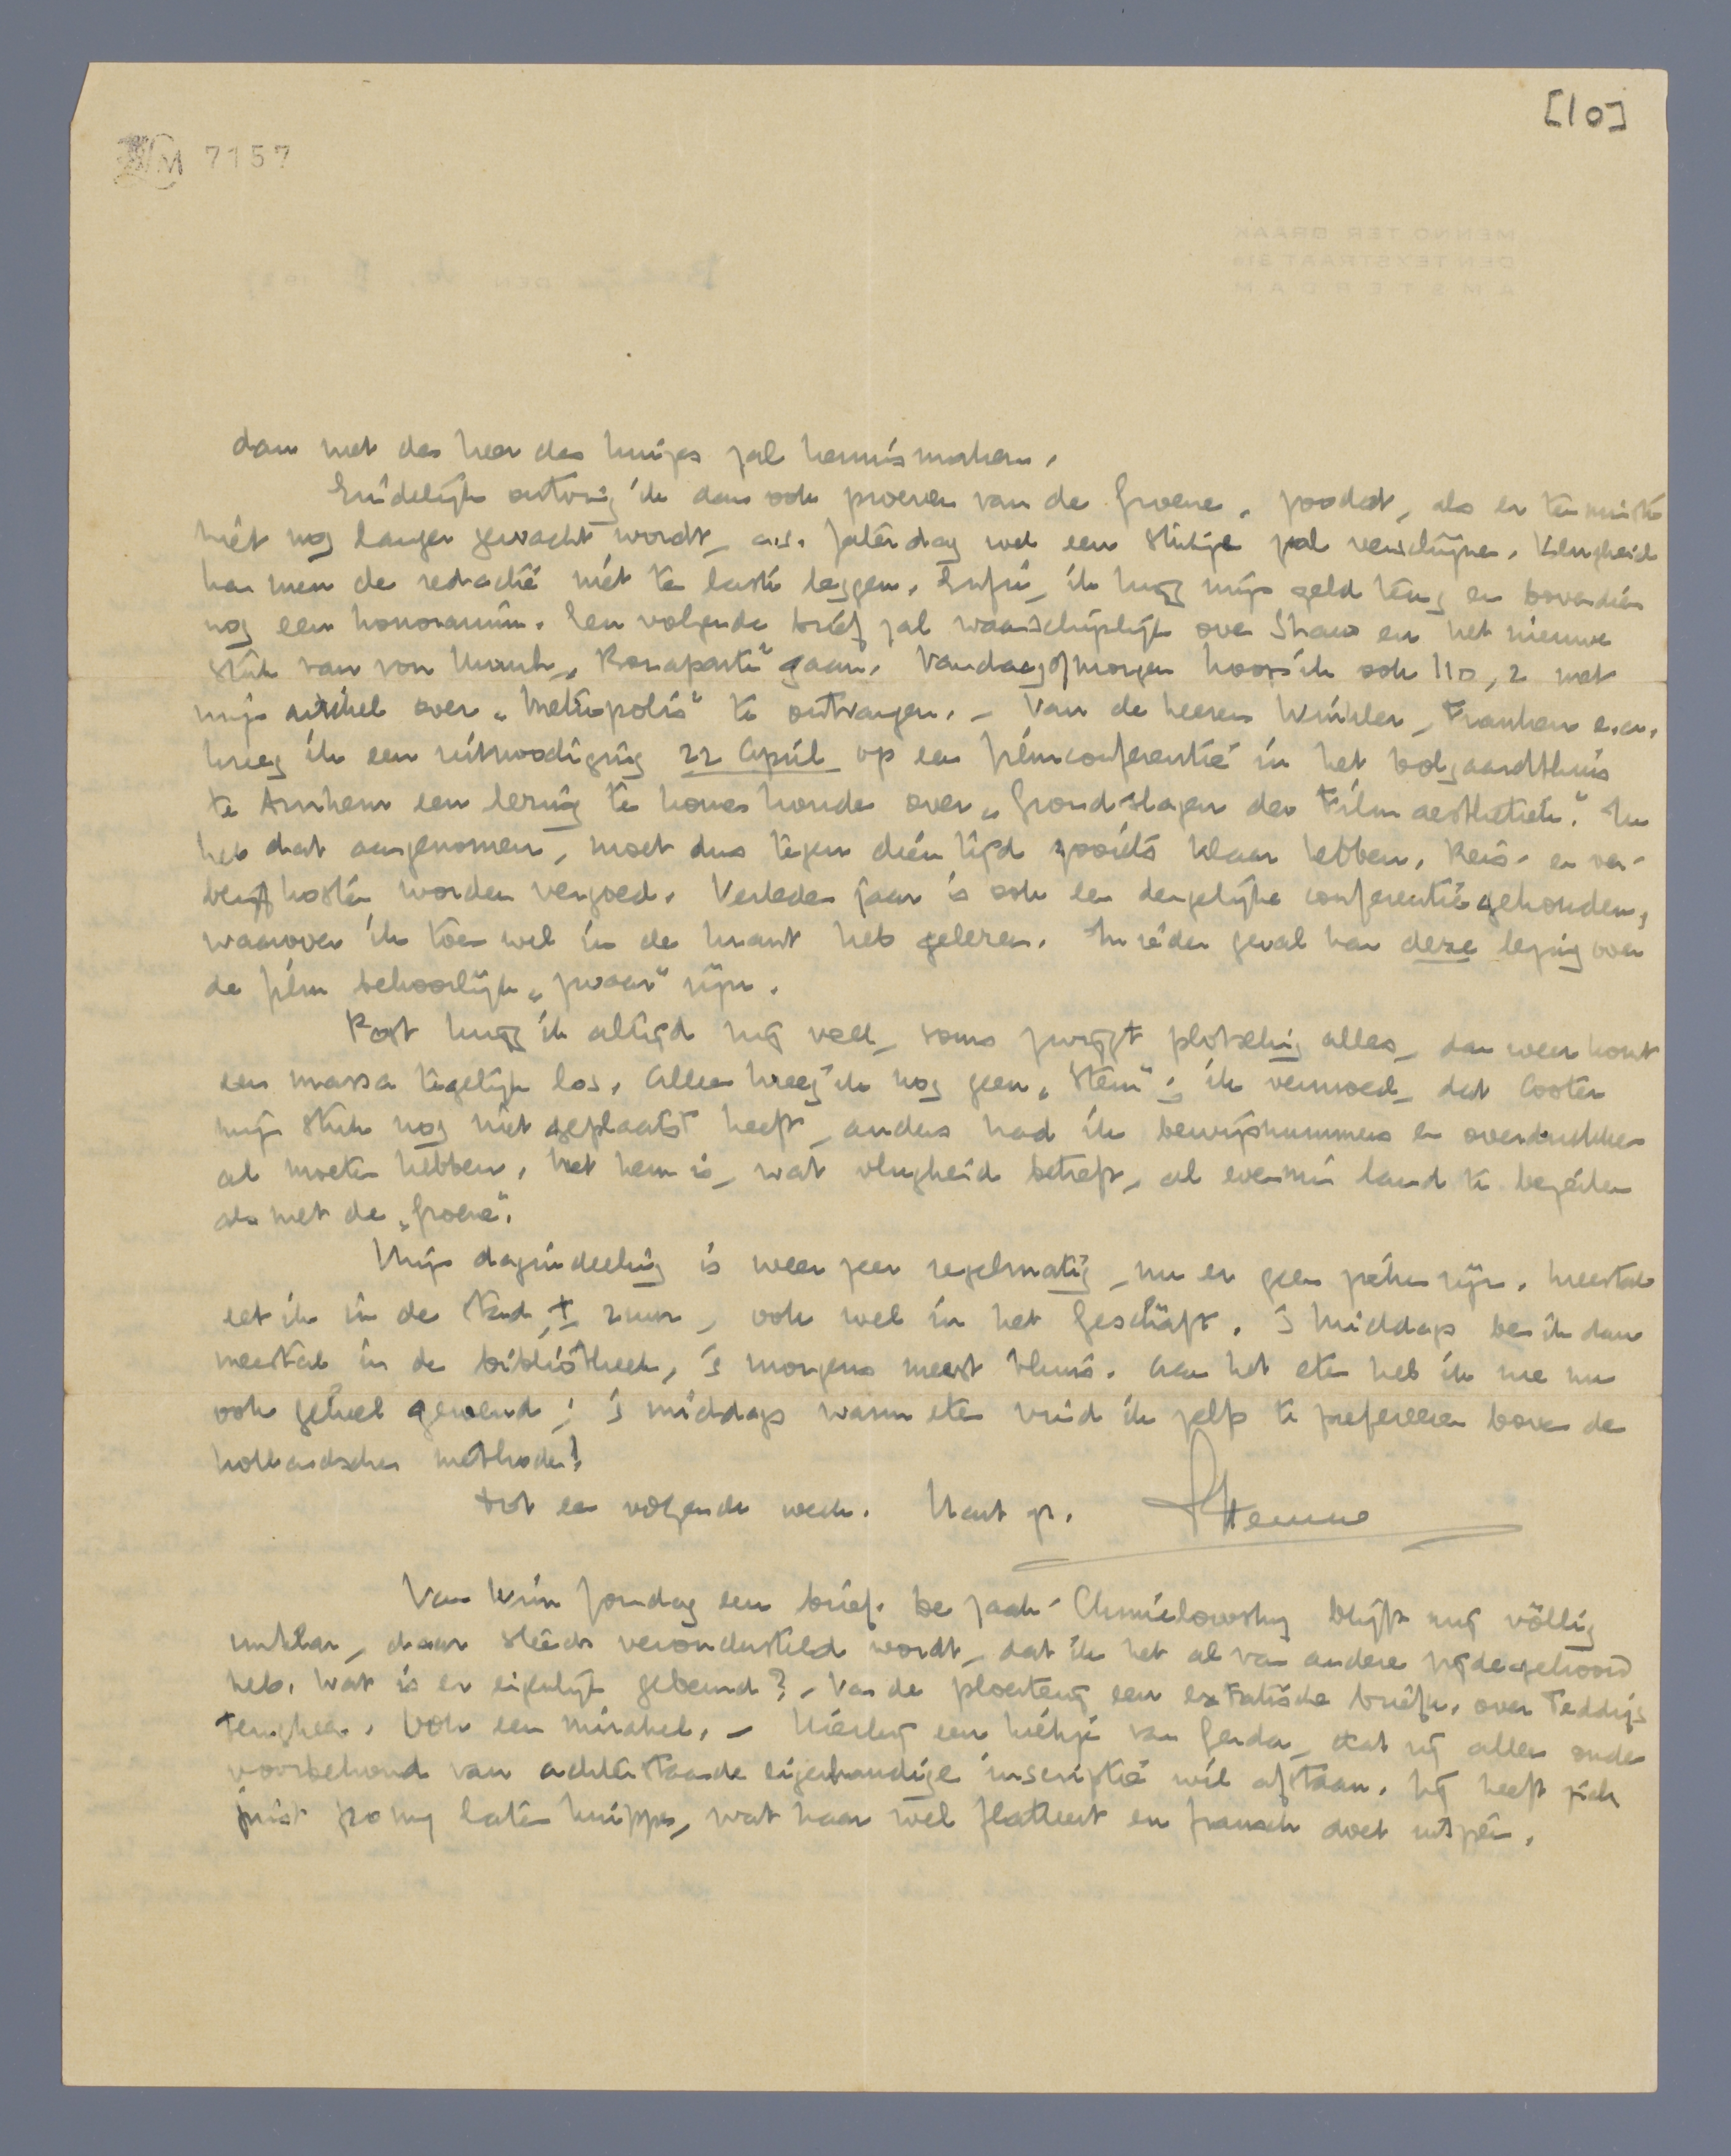 [10]
7157
dan met den heer des huizes zal kennismaken.
Eindelijk ontving ik dan ook proeven van de Groene, zoodat, als er ten minste
niet nog langer gewacht wordt, a.s. Zaterdag wel een stukje zal verschijnen. Vlugheid
kan men de redactie niet ten laste leggen. Enfin, ik krijg mijn geld terug en bovendien
nog een honorarium. Een volgende brief zal waarschijnlijk over Shaw en het nieuwe
stuk van von Unruh, "Bonaparte" gaan. Vandaag of morgen hoop ik ook I 10, 2 met
mijn artikel over "Metropolis" te ontvangen. – Van de heeren Winkler, Franken e.a.
kreeg ik een uitnoodiging 22 April op een filmconferentie in het Volgaardthuis
te Arnhem een lezing te komen houden over "Grondslagen der Filmaesthetiek". Ik
heb dat aangenomen, moet dus tegen dien tijd zooiets klaar hebben. Reis- en ver-
blijfkosten worden vergoed. Verleden jaar is ook een dergelijke conferentie gehouden,
waarover ik toen wel in de krant heb gelezen. In ieder geval kan deze lezing over
de film behoorlijk "zwaar" zijn.
Post krijg ik altijd vrij veel, soms zwijgt plotseling alles, dan weer komt
een massa tegelijk los. Alleen kreeg ik nog geen "Stem"; ik vermoed, dat Coster
mijn stuk nog niet geplaatst heeft, anders had ik bewijsnummers en overdrukken
al moeten hebben. Met hem is, wat vlugheid betreft, al evenmin land te bezeilen
als met de "Groene".
Mijn dagindeeling is weer zeer regelmatig, nu er geen zieken zijn. Meestal
eet ik in de stad, ± 2 uur, ook wel in het Geschäft. 's Middags ben ik dan
meestal in de bibliotheek, 's morgens meest thuis. Aan het eten heb ik me nu
ook geheel gewend; 's middags warm eten vind ik zelfs te prefereeren boven de
hollandsche methode!
Tot een volgende week. Hart. gr. Menno
Van Wim Zondag een brief. De zaak-Chmielowsky blijft mij völlig
unklar, daar steeds verondersteld wordt, dat ik het al van andere zijde gehoord
heb. Wat is er eigenlijk gebeurd? – Van de ploerterij een extatische brief, over Teddy's
terugkeer. Ook een mirakel. – Hierbij een kiekje van Gerda, dat zij alleen onder
voorbehoud van achterstaande eigenhandige inscriptie wil afstaan. Zij heeft zich
juist pony laten knippen, wat haar wel flatteert en fransch doet uitzien.